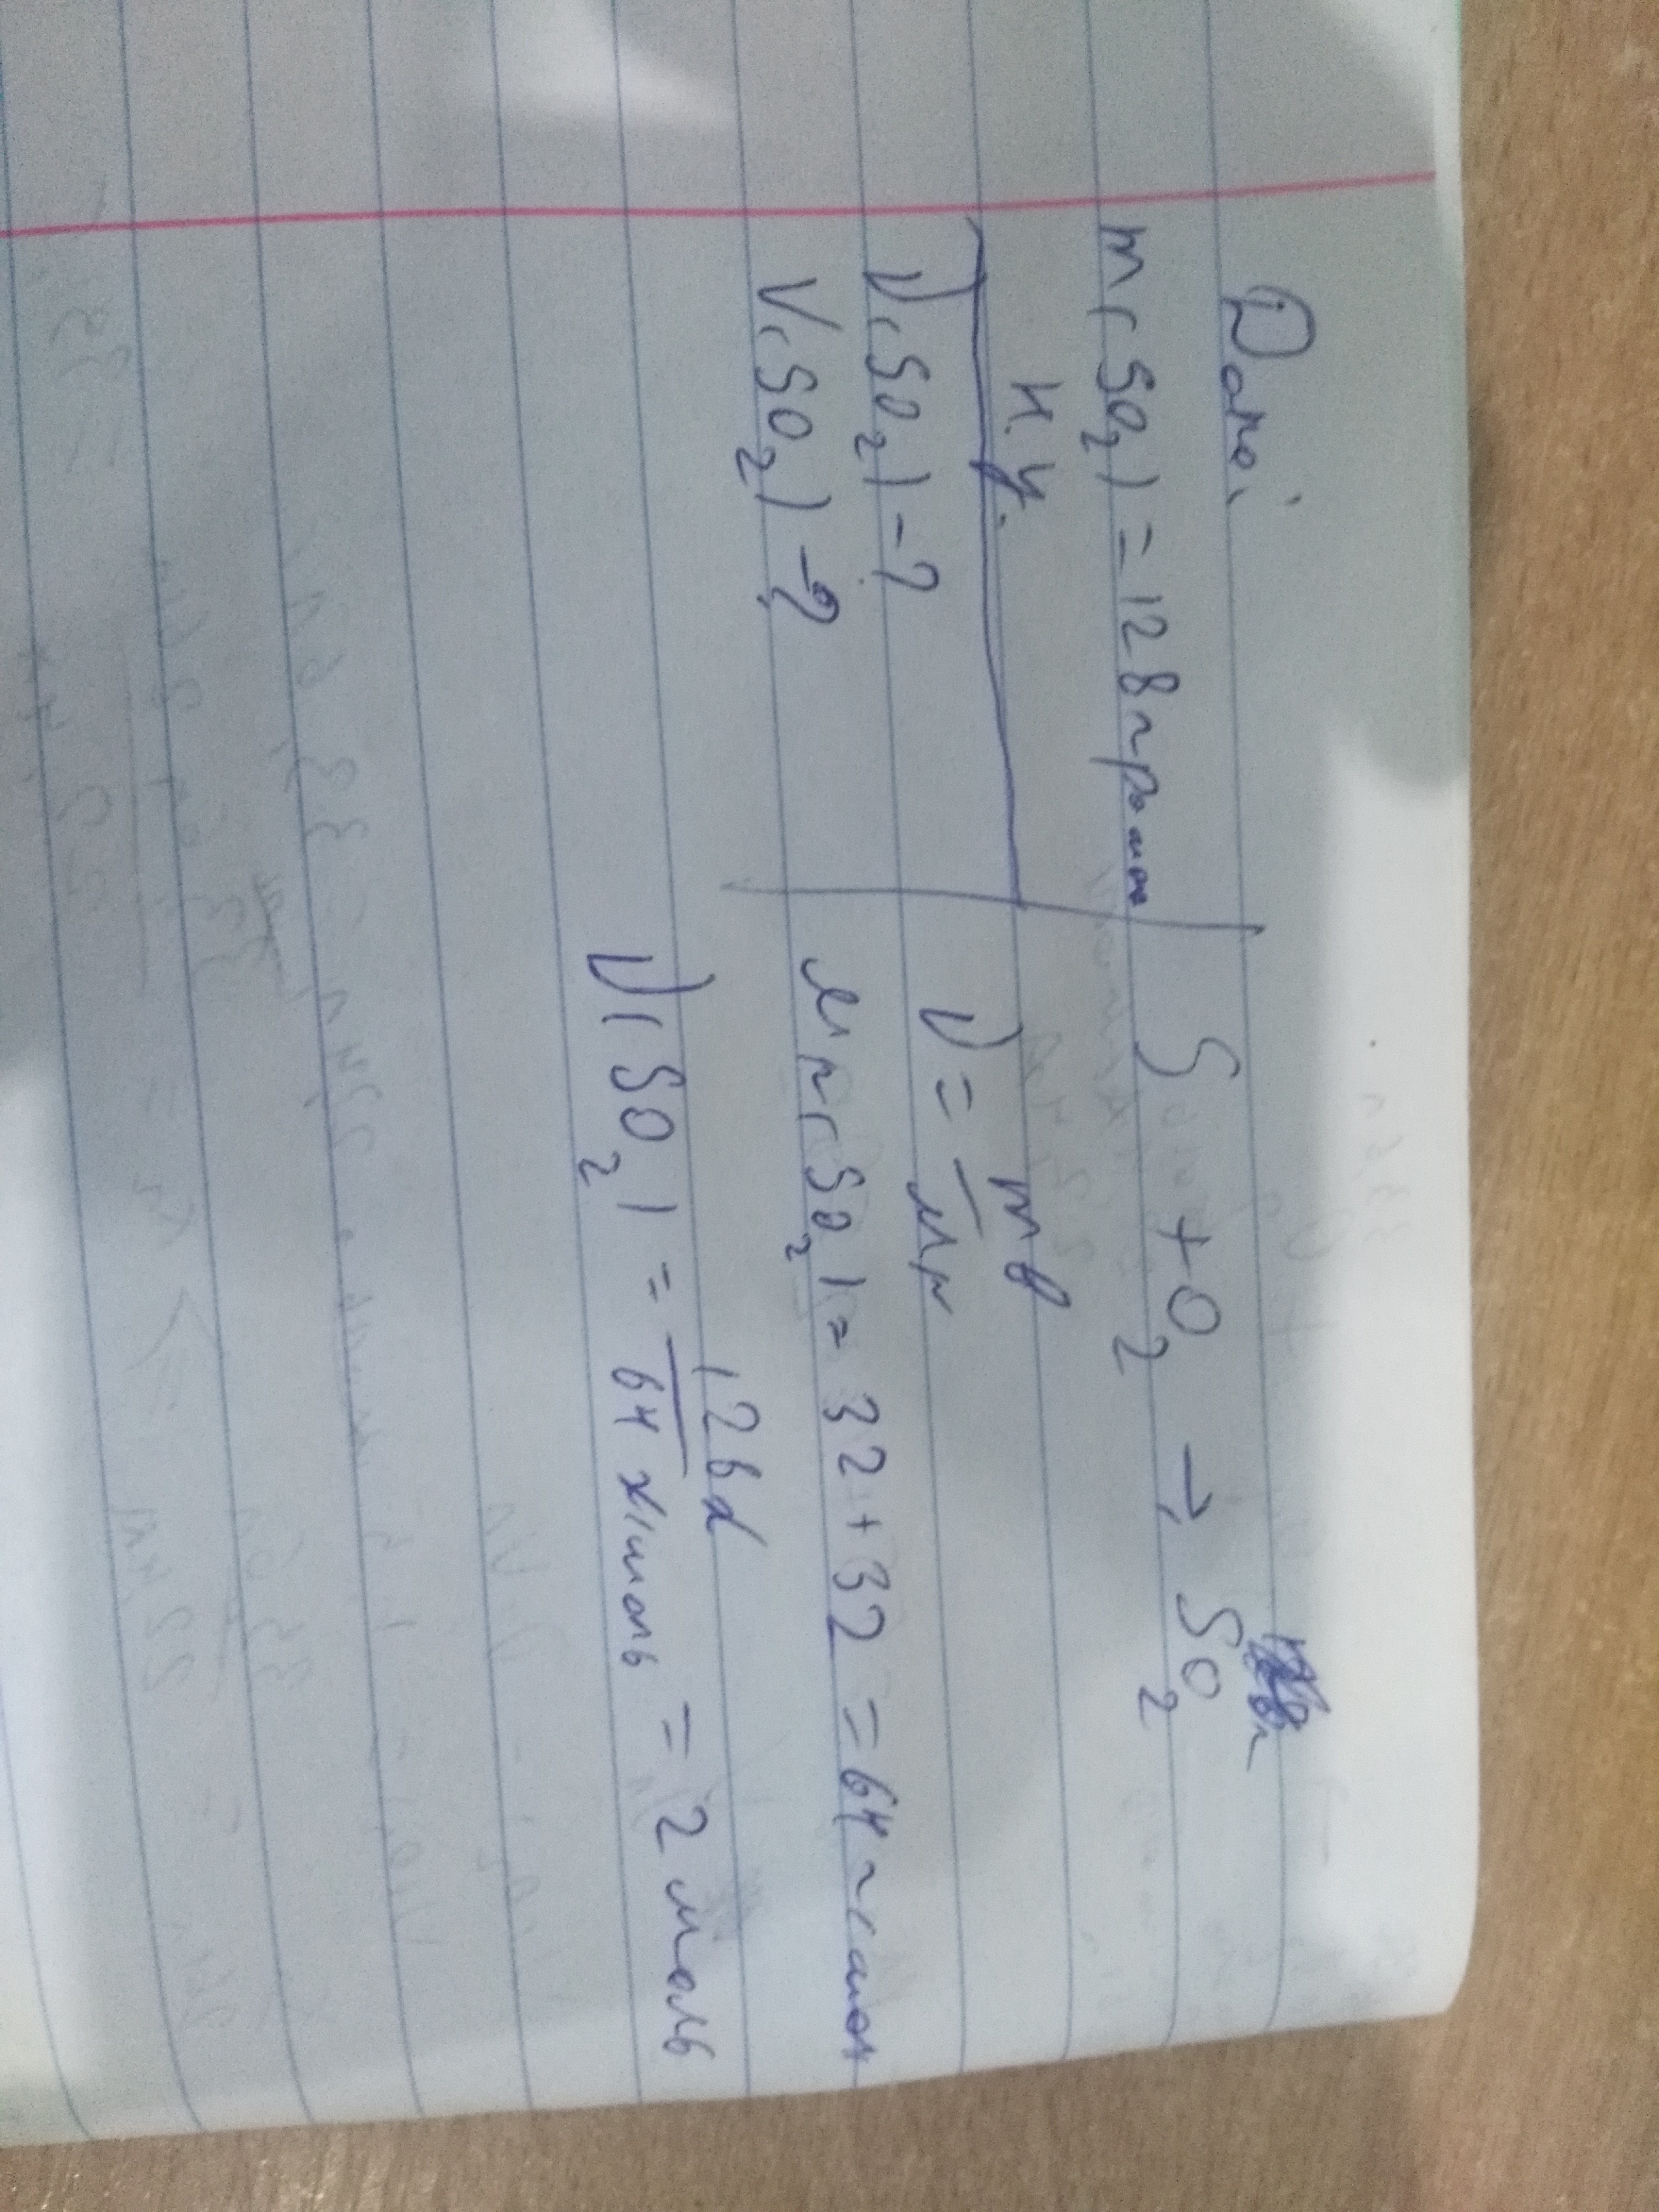 Дано:
m(SO2) = 128 грамм
н.у.
ν(SO2) - ?
V(SO2) - ?
S + O2 → SO2
ν = m / Mr
Mr(SO2) = 32 + 32 = 64 г/моль
ν(SO2) = 128 / 64 г/моль = 2 моль